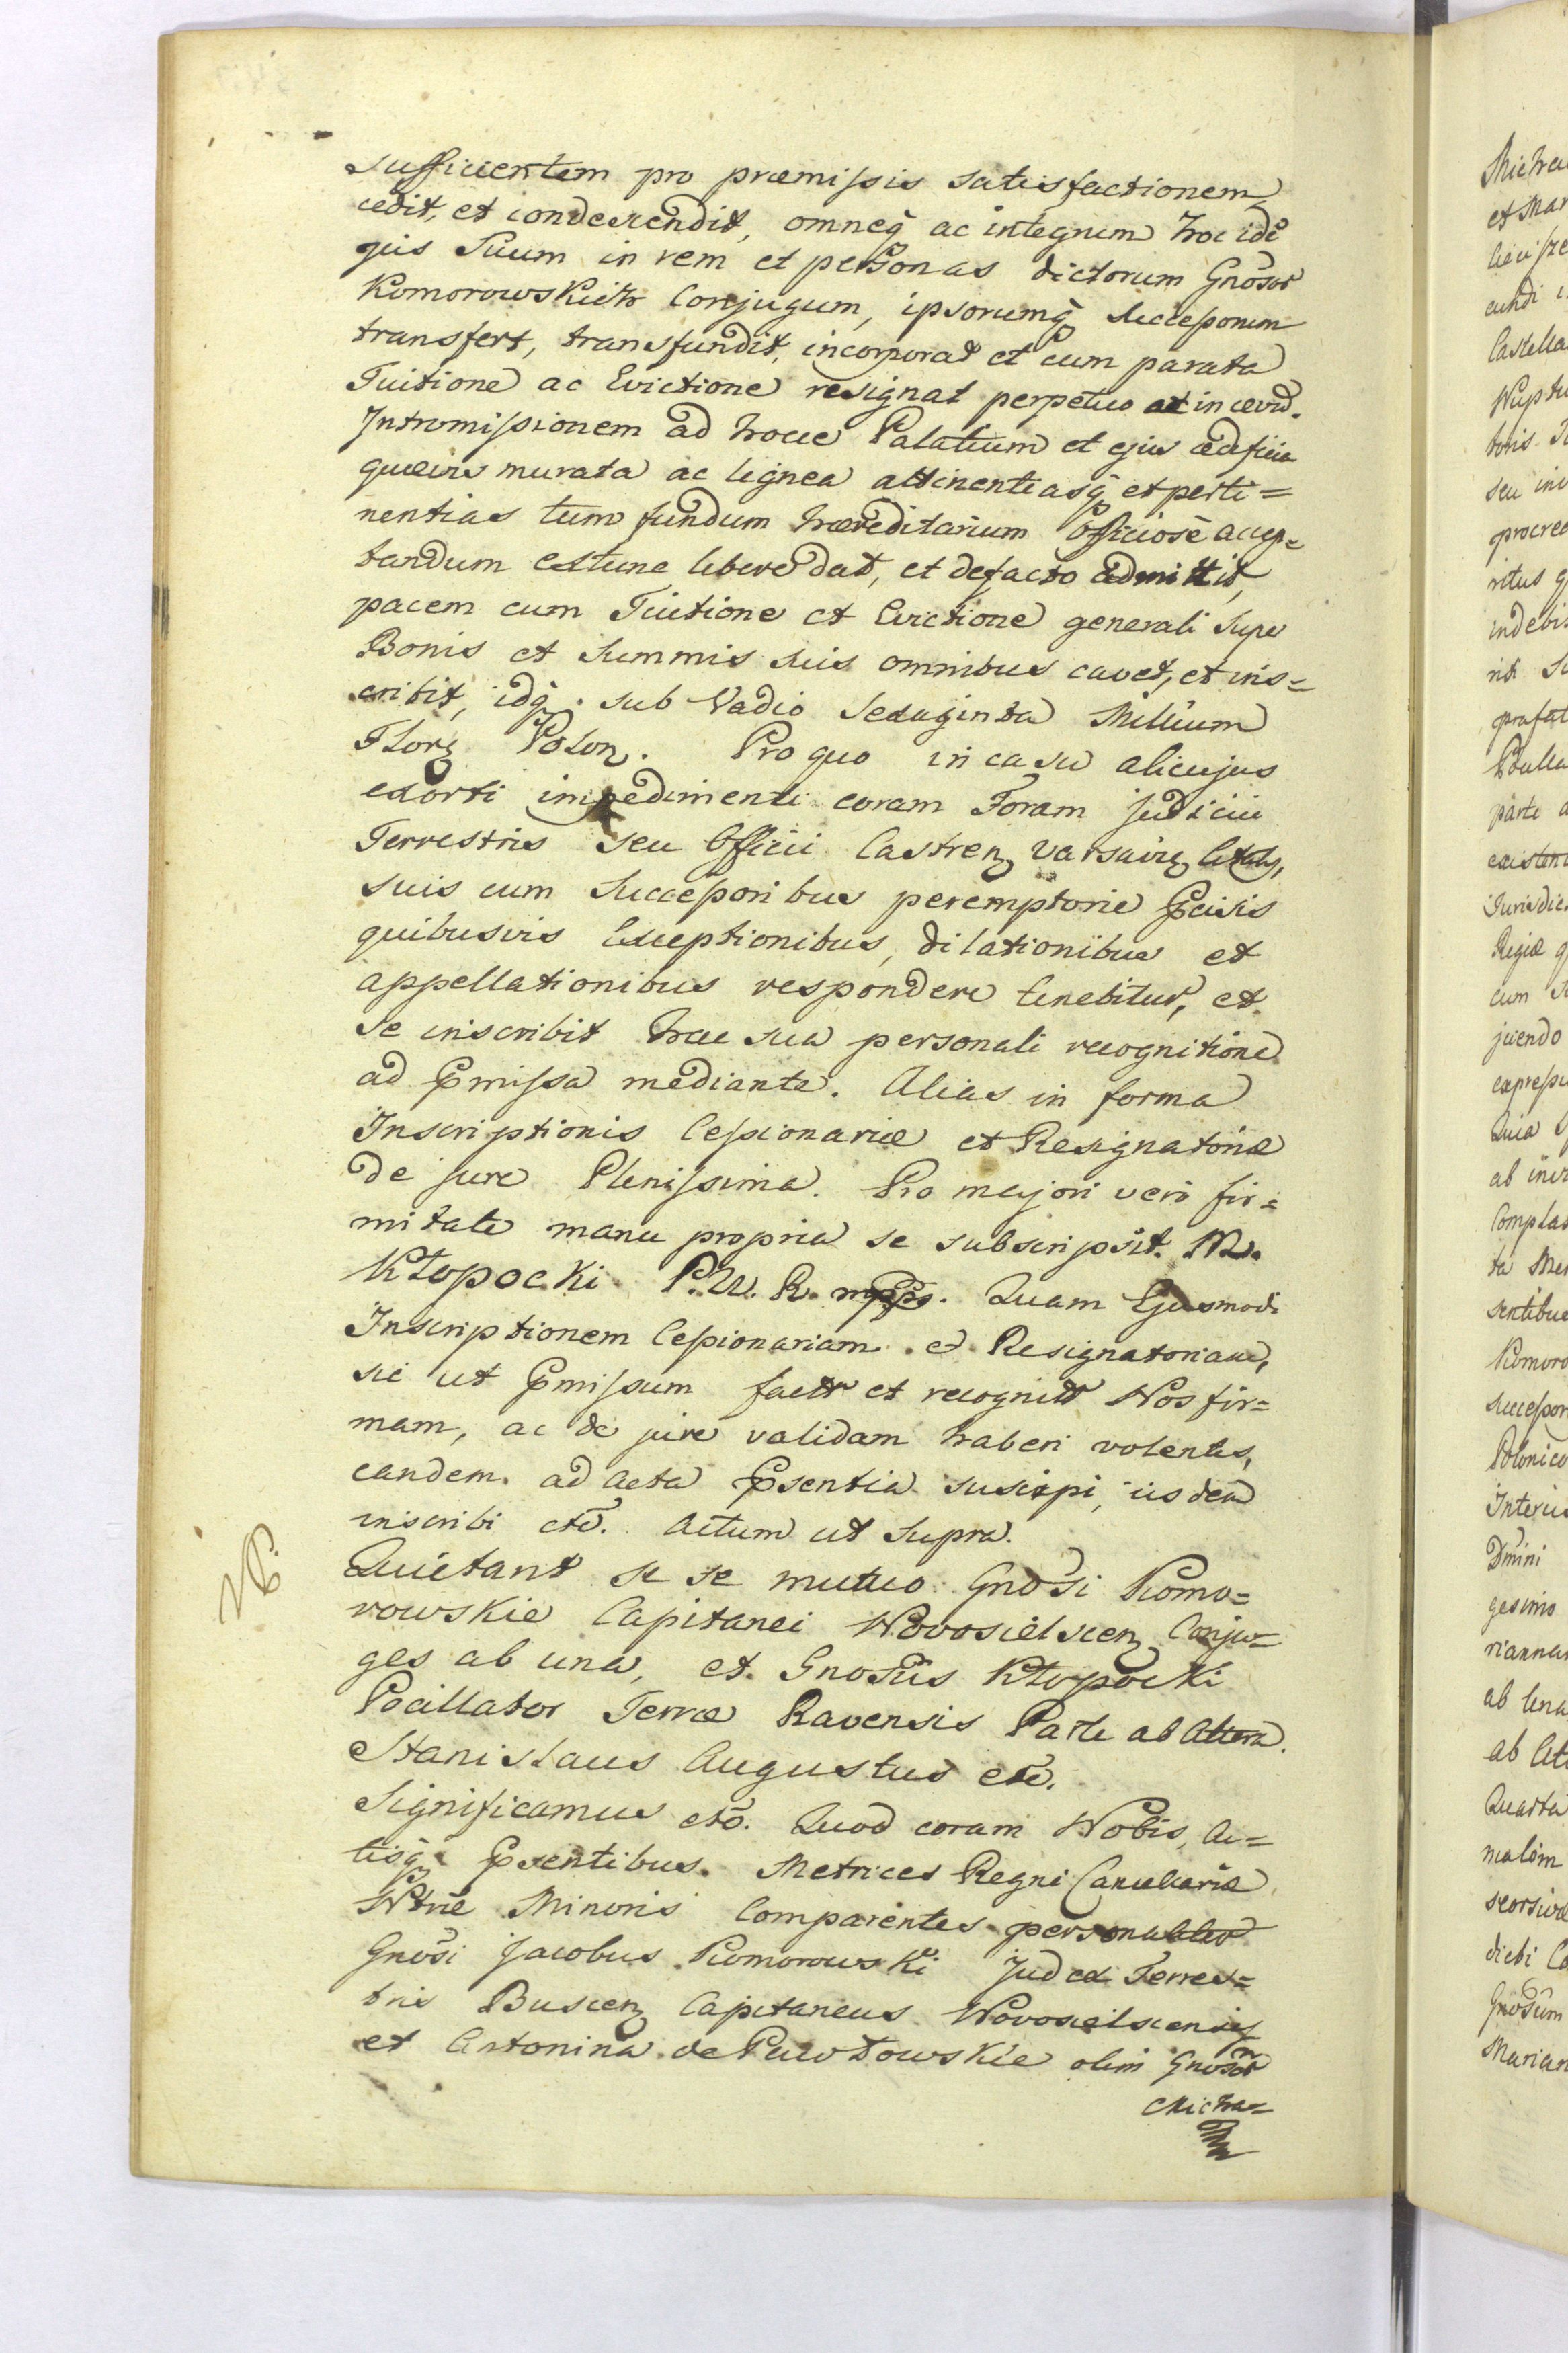 sufficientem pro præmissis satisfactionem
cedit, et condescendit, omneq̃ ac integrum hoc idẽ
jus Suum in rem et personas dictorum Gnõsor̃
Komorowskich Conjugum, ipsorumq̃ Successorum
transfert, transfundit, incorporat et cum parata
Tuitione ac Evictione resignat perpetuo et in ævũ.
Intromissionem ad hocce Palatium et ejus ædificia
quævis murata ac lignea attinentiasq̃ et perti=
nentias tum fundum hæreditarium officiosè accep=
tandum extunc libere dat, et defacto admittit,
pacem cum Tuitione et Evictione generali Super
Bonis et Summis suis omnibus cavet, et ins=
cribit, idq̃ sub Vadio Sexaginta Millium
Florẽ Polon. Pro quo in casu alicujus
exorti impedimenti coram Foram judicii
Terrestris seu Officii Castreñ Varsavieñ Citatus,
suis cum Successoribus peremptorie p̃cisis
quibusvis Exceptionibus, dilationibus et
appellationibus respondere tenebitur, et
se inscribit hac sua personali recognitione
ad p̃missa mediante. Alias in forma
Inscriptionis Cessionariæ et Resignatoriæ
de jure Plenissima. Pro majori verò fir=
mitate manu propria se subscripsit. M.
Kłopocki P. Z. R. mpp. Quam Ejusmodi
Inscriptionem Cessionariam et Resignatoriam,
sic ut p̃missum factã et recognitã Nos fir=
mam, ac de jure validam haberi volentes,
eandem ad Acta p̃sentia suscipi, iisdem
inscribi etc̃. Actum ut Supra.
NB.
Quietant se se mutuo Gnõsi Komo=
rowskie Capitanei Novosielsceñ Conju=
ges ab una, et Gnosũs Kłopocki
Pocillator Terræ Ravensis Parte ab Altera.
Stanislaus Augustus etc̃.
Significamus etc̃. Quod coram Nobis, Ac=
tisq̃ p̃sentibus Metrices Regni Cancellariæ
Ntræ Minoris Comparentes personaliter
Gnõsi Jacobus Komorowski Judex Terres=
tris Busceñ Capitaneus Novosielscensis
et Antonina de Pawłowskie olim Gnosor̃
Micha=